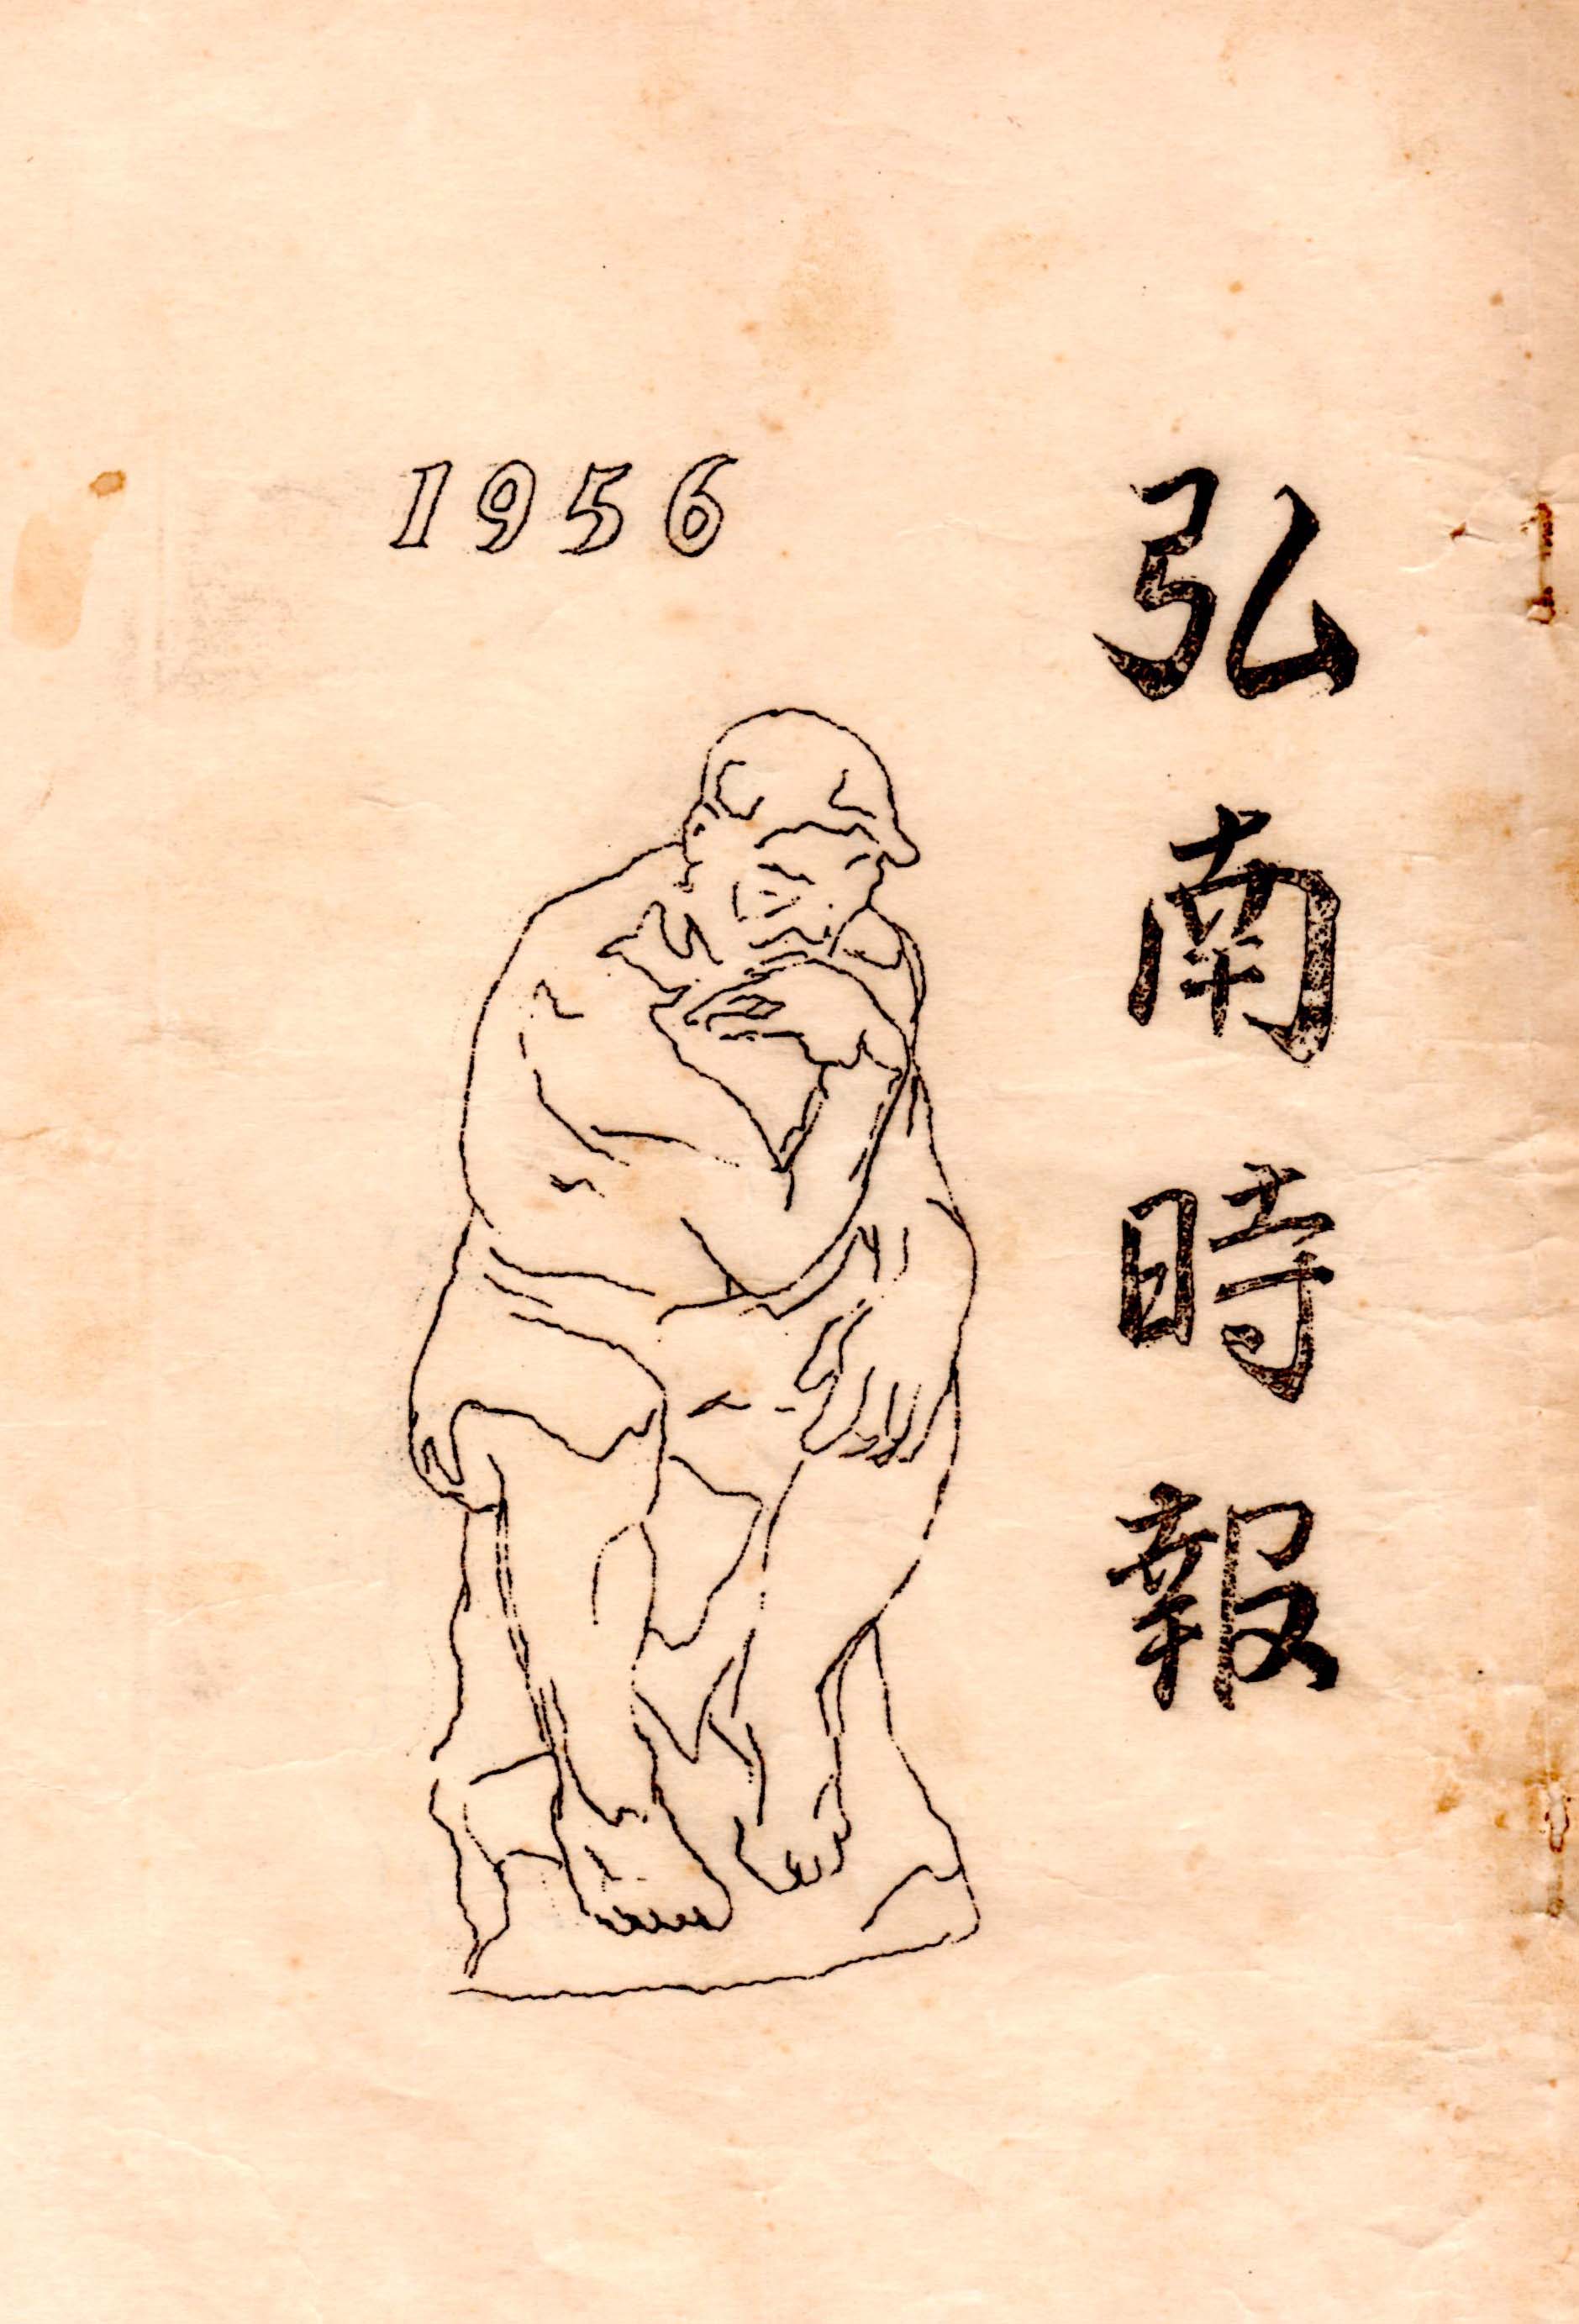 弘南時報
1956